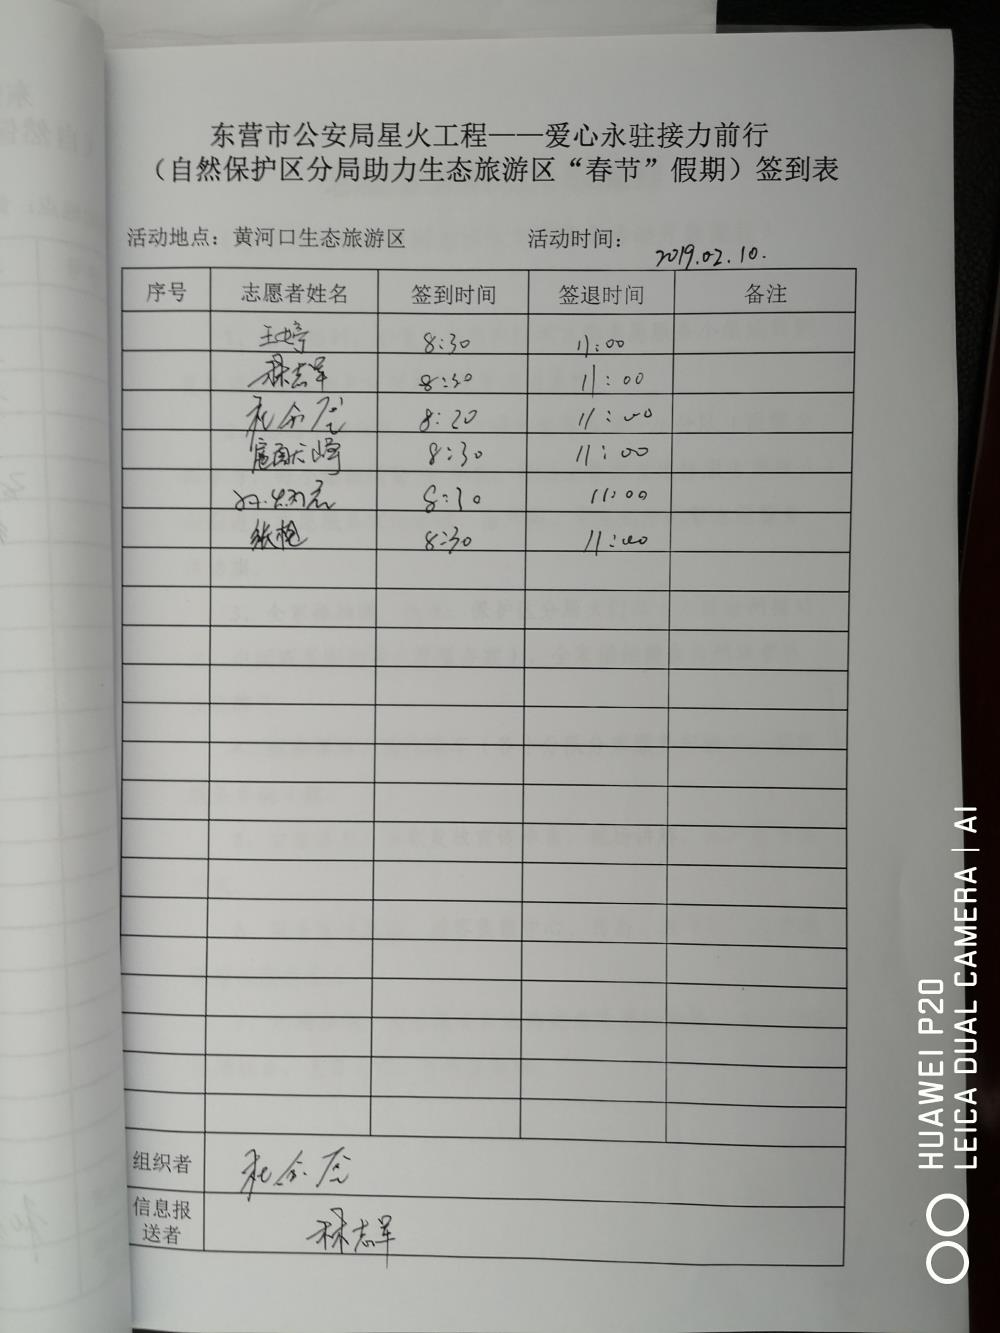 东营市公安局星火工程——爱心永驻接力前行
（自然保护区分局助力生态旅游区“春节”假期）签到表
活动地点：黄河口生态旅游区 活动时间：2019.02.10.
序号 志愿者姓名 签到时间 签退时间 备注
王婷 8:30 11:00
林志军 8:30 11:00
8:20 11:00
8:30 11:00
8:30 11:00
张艳 8:30 11:00
组织者
信息报
送者 林志军
HUAWEI P20
LEICA DUAL CAMERA | AI